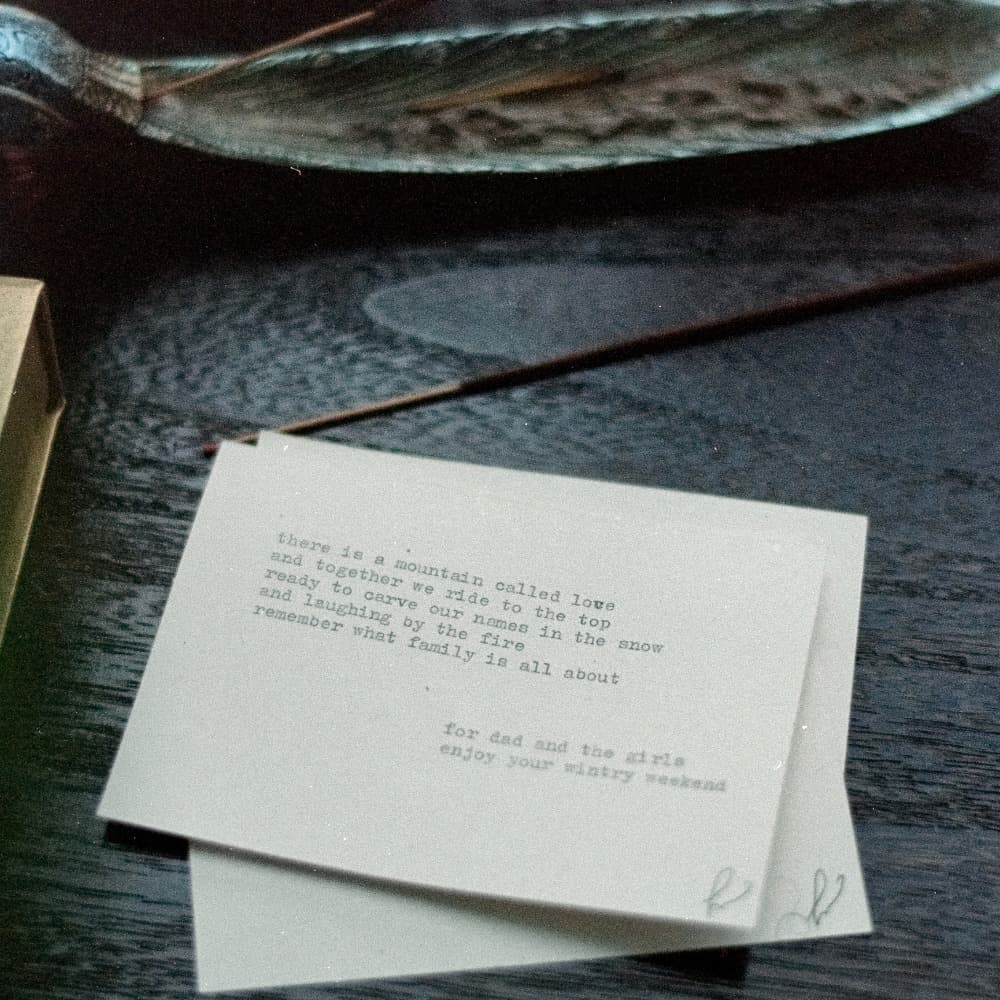 there is a mountain called love
and together we ride to the top
ready to carve our names in the snow
and laughing by the fire
remember what family is all about
for dad and the girls
enjoy your wintry weekend